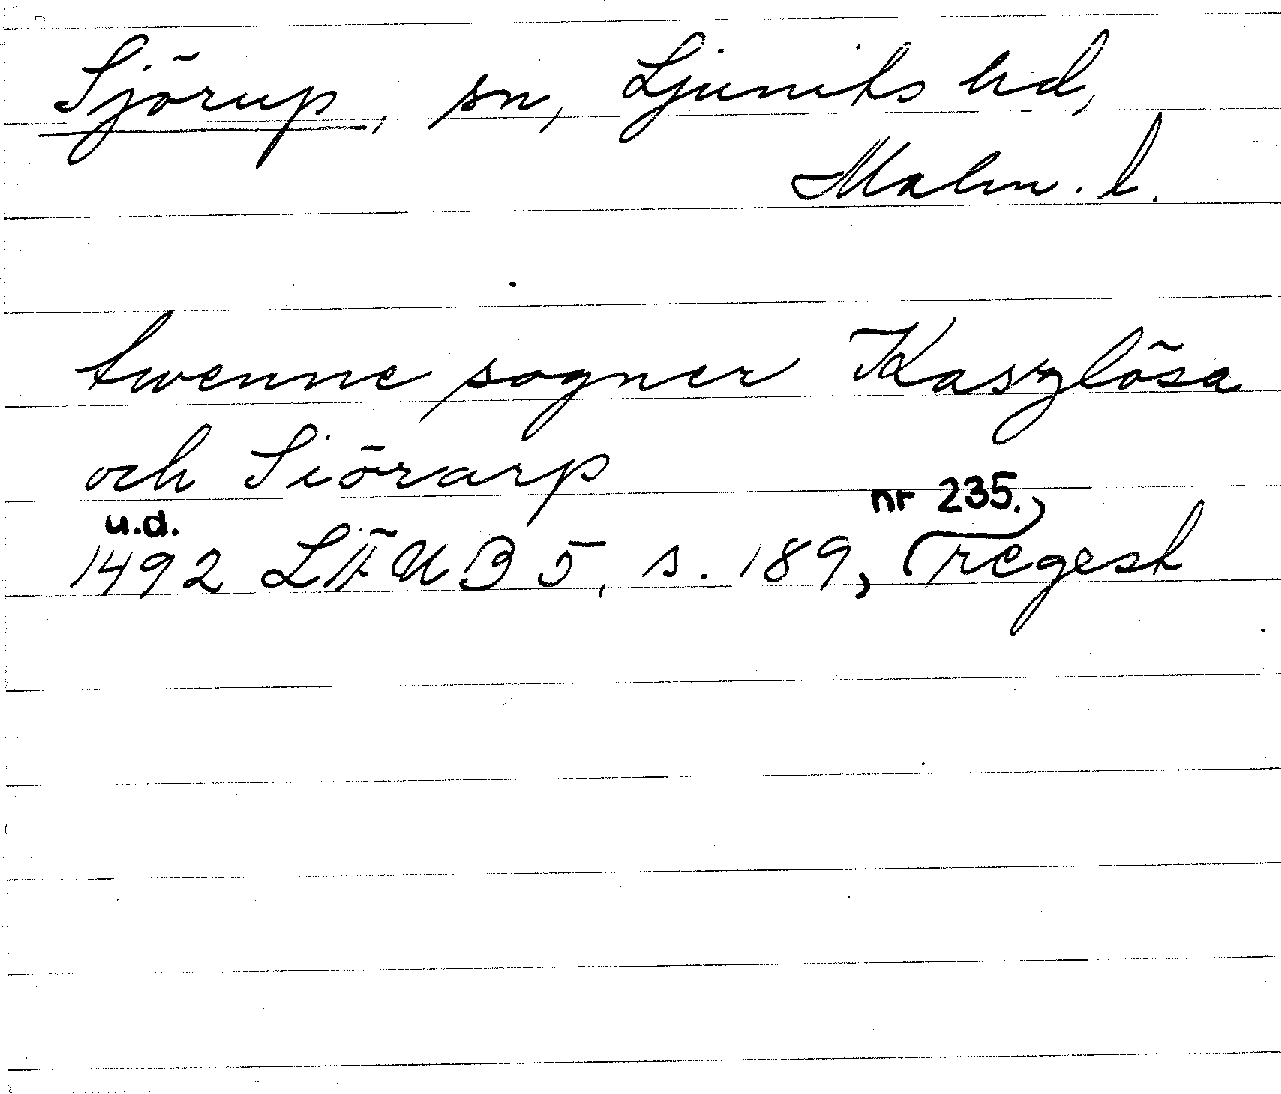 Sjörup, sn, Ljunits hd,
Malm. l.
twenne sogner Kaszlösa
och Siörarp
u.d. nr 235.
1492 LÄUB 5, s. 189, regest